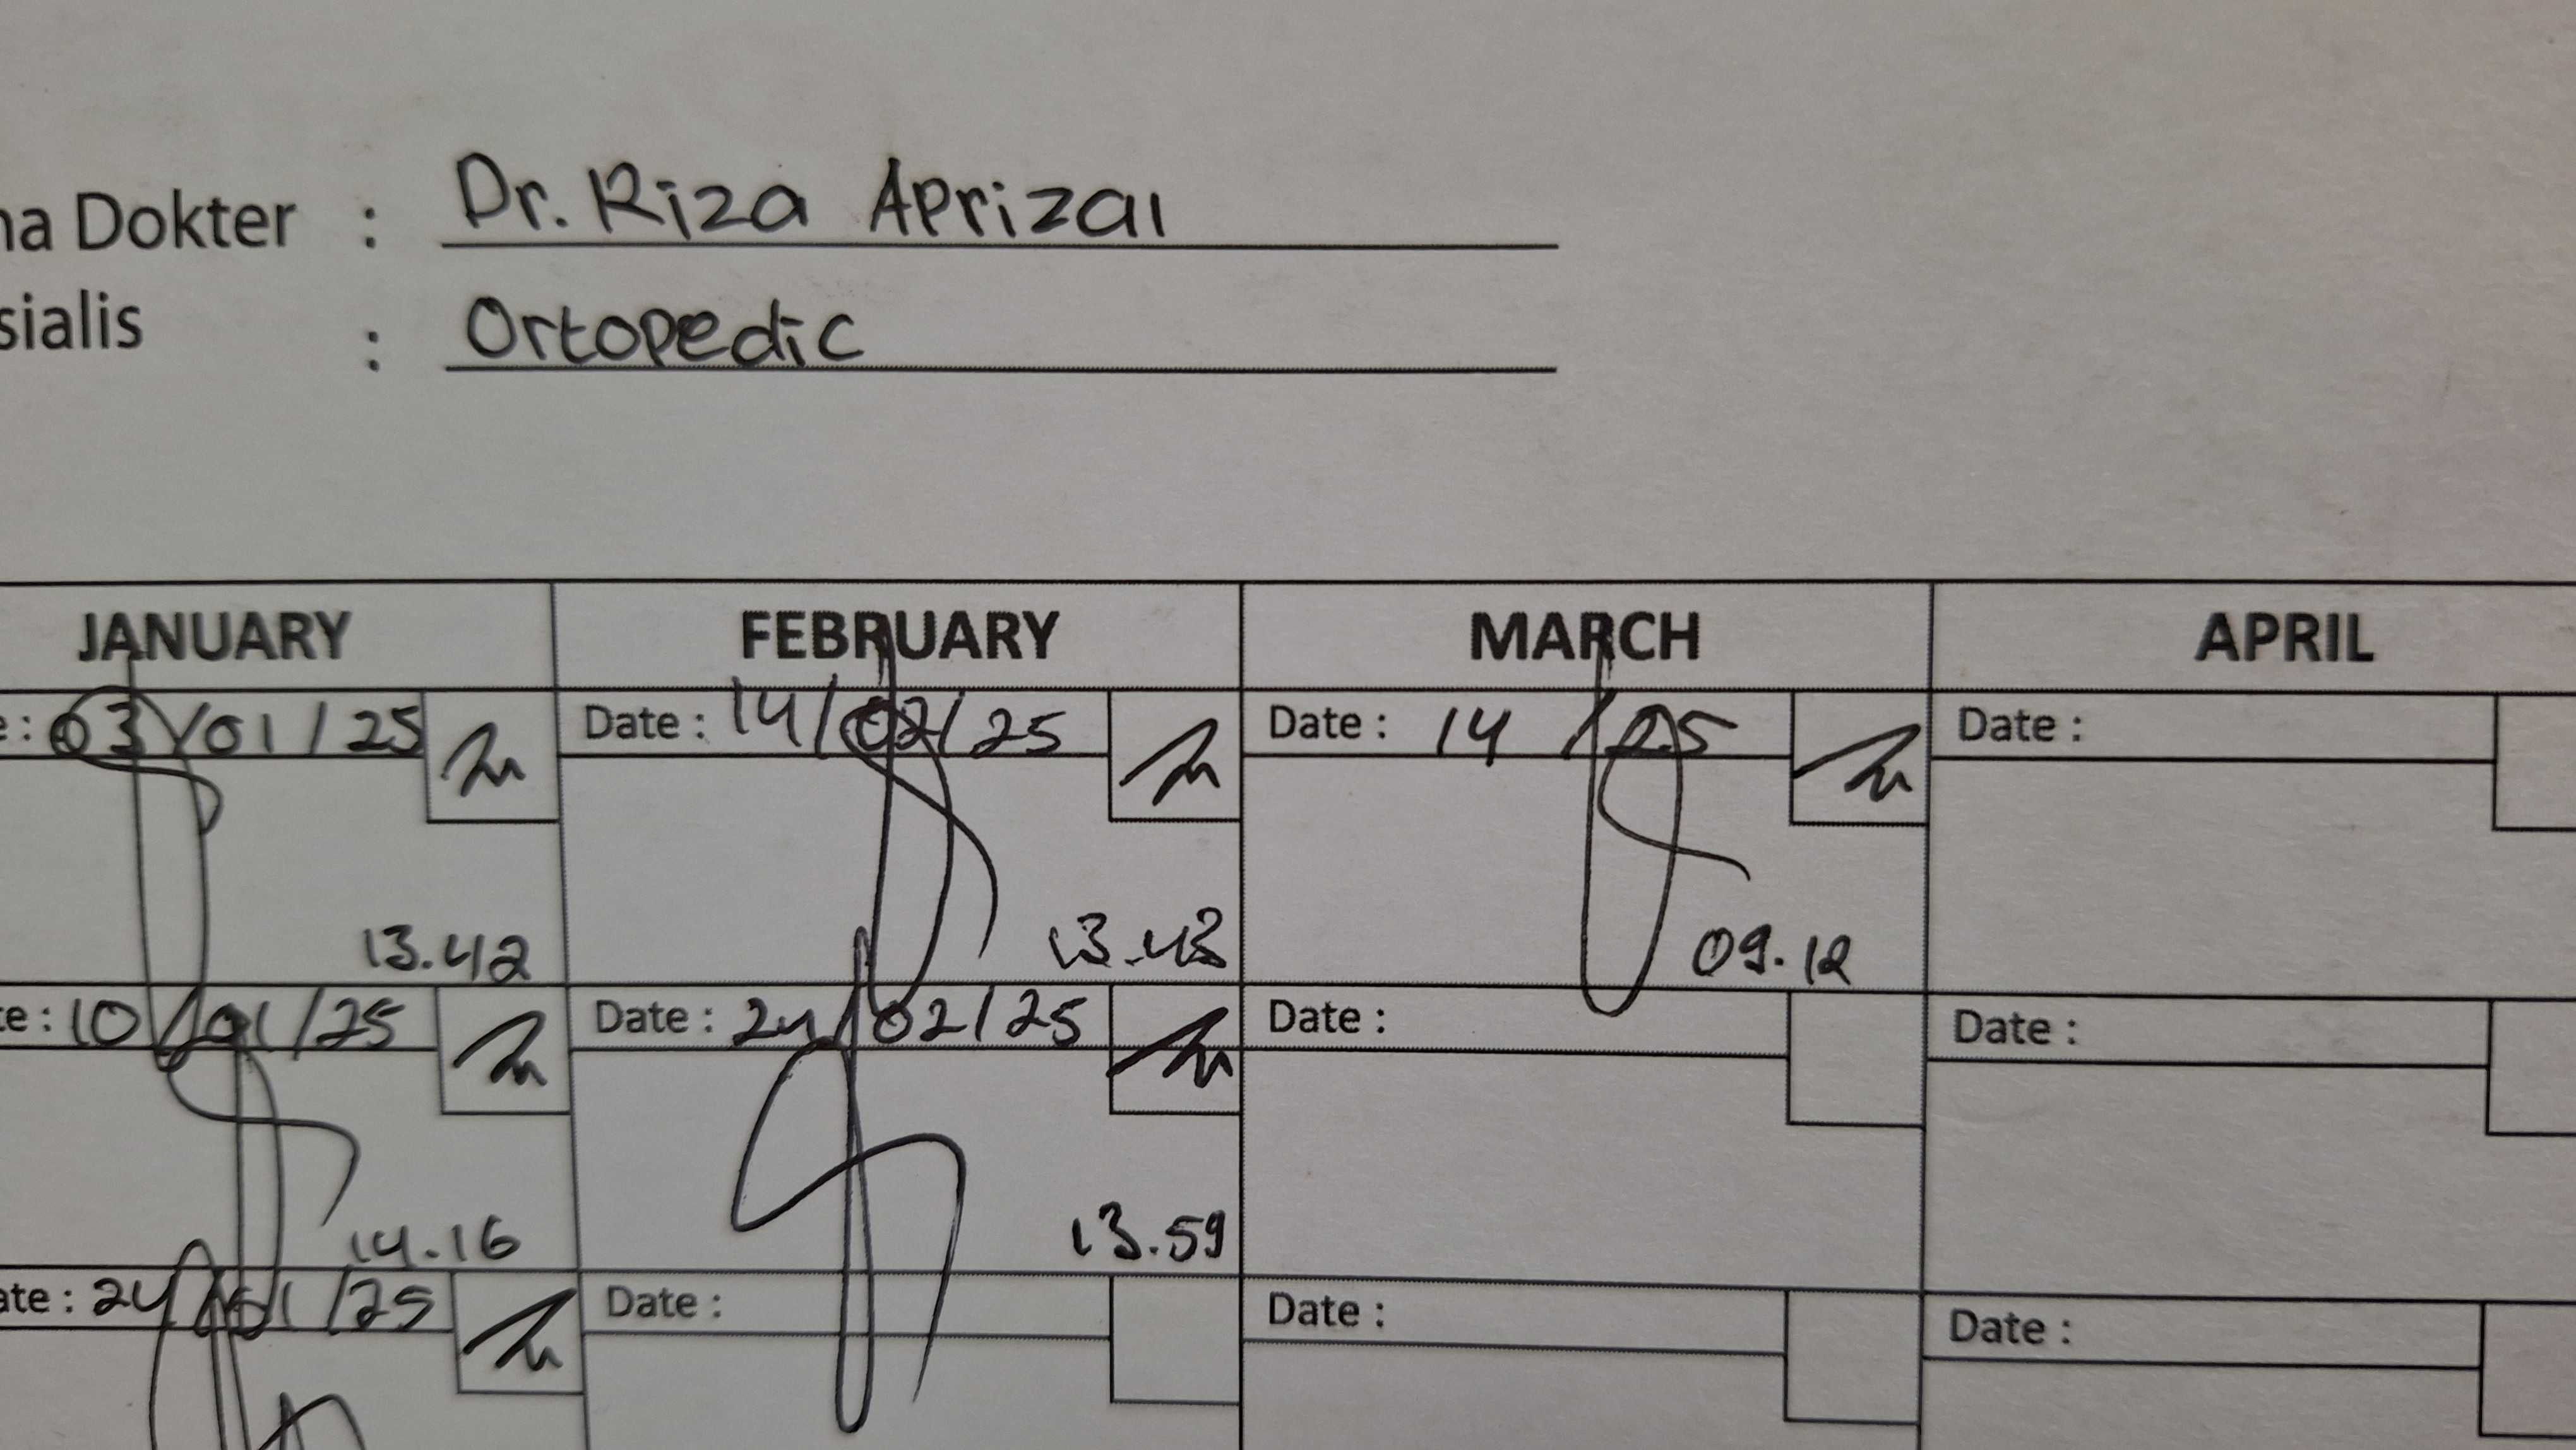 na Dokter : Dr. Riza Aprizal
sialis : Ortopedic
JANUARY FEBRUARY MARCH APRIL
e : 03/01/25 Date : 14/02/25 Date : 14 /25 Date :
13.42 13.43 09.12
te : 10/01/25 Date : 24/02/25 Date : Date :
14.16 13.59
ate : 24/01/25 Date : Date : Date :